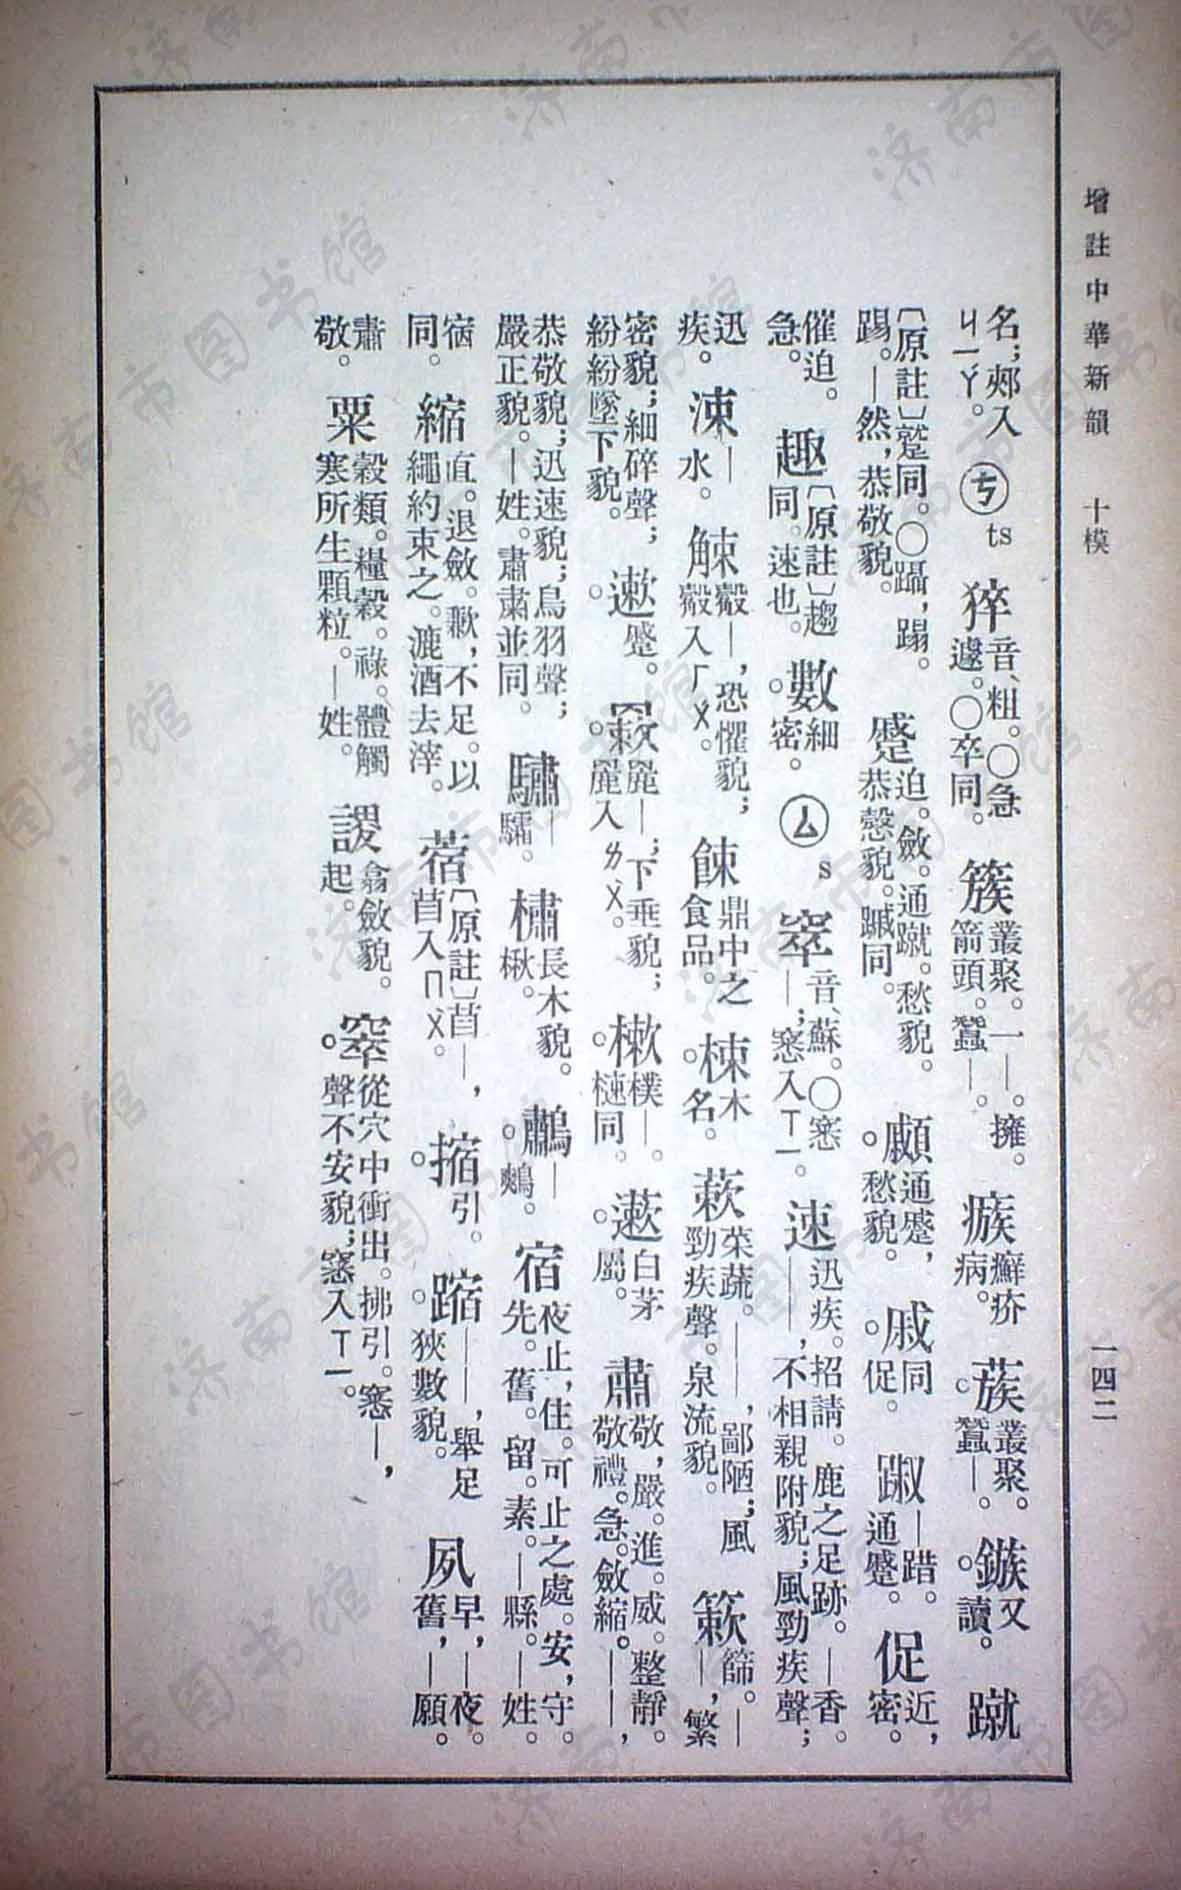 增註中華新韻　十模　一四二
名；郟入ㄐㄧㄚ。㋡ㄘ ts 猝音粗。〇急遽。〇卒同。簇叢聚。一—。擁。箭頭。蠶—。瘯癬疥病。蔟叢聚。蠶—。鏃又讀。蹴
〔原註〕蹵同。〇躡，蹋。踢。—然，恭敬貌。蹙迫。斂。通蹴。愁貌。恭慤貌。䠞同。顣通蹙，愁貌。戚同促。踧—踖。通蹙。促近，密。
催迫。急。趣〔原註〕趨同。速也。數細密。ㄙ s 窣音蘇。〇窸—；窸入ㄒㄧ。速迅疾。招請。鹿之足跡。—香。——，不相親附貌；風勁疾聲；
迅疾。涑—水。觫觳—，恐懼貌；觳入ㄏㄨ。餗鼎中之食品。梀木名。蔌菜蔬。——，鄙陋；風勁疾聲。泉流貌。簌篩。——，繁
密貌；細碎聲；紛紛墜下貌。遬蹙。䍡—；下垂貌；䍡入ㄌㄨ。樕樸—。同。藗白茅屬。肅敬，嚴。進。威。整靜。敬禮。急。斂縮。——，
恭敬貌；迅速貌；鳥羽聲；嚴正貌。—姓。肅粛並同。驌—驦。橚長木貌。楸。鷫—鷞。宿夜止，住。可止之處。安，守。先。舊。留。素。—縣。—姓。
㝛同。縮直。退斂。歉，不足。以繩約束之。漉酒去滓。蓿〔原註〕苜—，苜入ㄇㄨ。摍引。蹜——，舉足狹數貌。夙早，—夜。舊，—願。
肅敬。粟穀類。糧穀。祿。體觸寒所生顆粒。—姓。謖翕斂貌。起。窣從穴中衝出。拂引。窸—，聲不安貌；窸入ㄒㄧ。